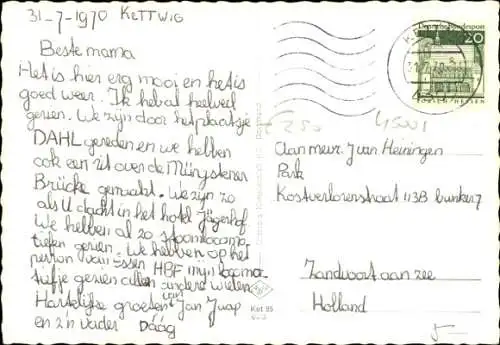 31-7-1970 KETTWIG
Beste mama
Het is hier erg mooi en het is
goed weer. Ik heb al heel veel
gezien. We zijn door het plaatsje
DAHL gereden en we hebben
ook een rit over de Müngstener
Brücke gemaakt. We zijn zo
als U dacht in het hotel Jägerhof
We hebben al 20 stoomlocomo-
tiefen gezien. We hebben op het
perron van Essen HBF mijn locomo-
tiefje gezien allen andere wielen
Hartelijke groeten van Jan Jaap
en z'n vader Dáág
Deutsche Bundespost
20
LORSCH/HESSEN
250
45001
Aan mevr. J van Heiningen
Park
Kostverlorenstraat 113B bunker 7
Zandvoort aan zee
Holland
Ket 95